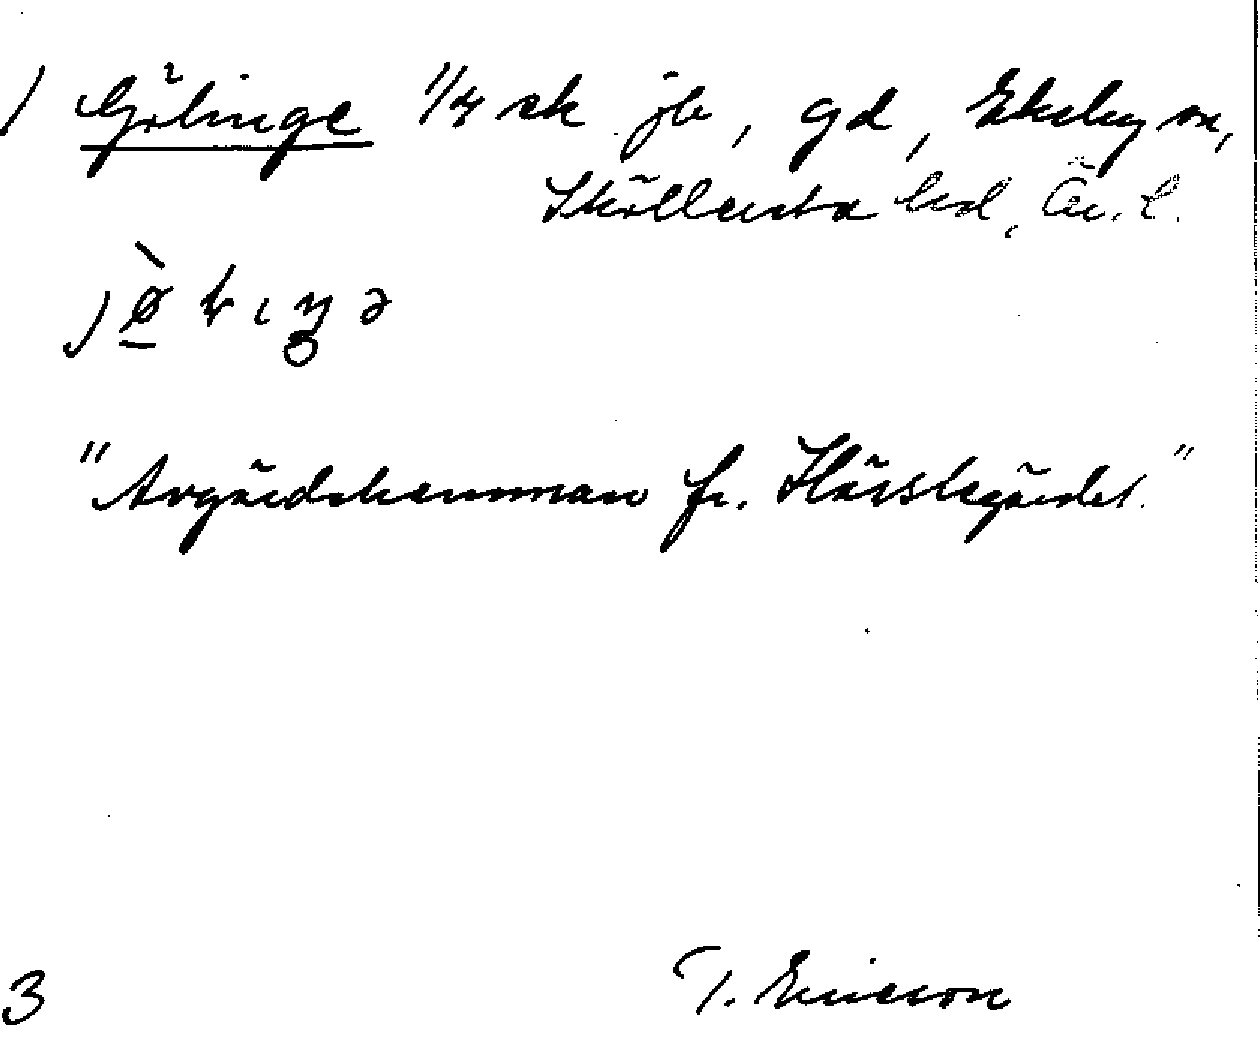 ) Gölinge 1/4 sk jb, gd, Ekeby sn,
Sköllersta hd, Ör. l.
jø̀lıŋə
"Avgärdshemman fr. Hässlegärdet."
3 T. Ericson